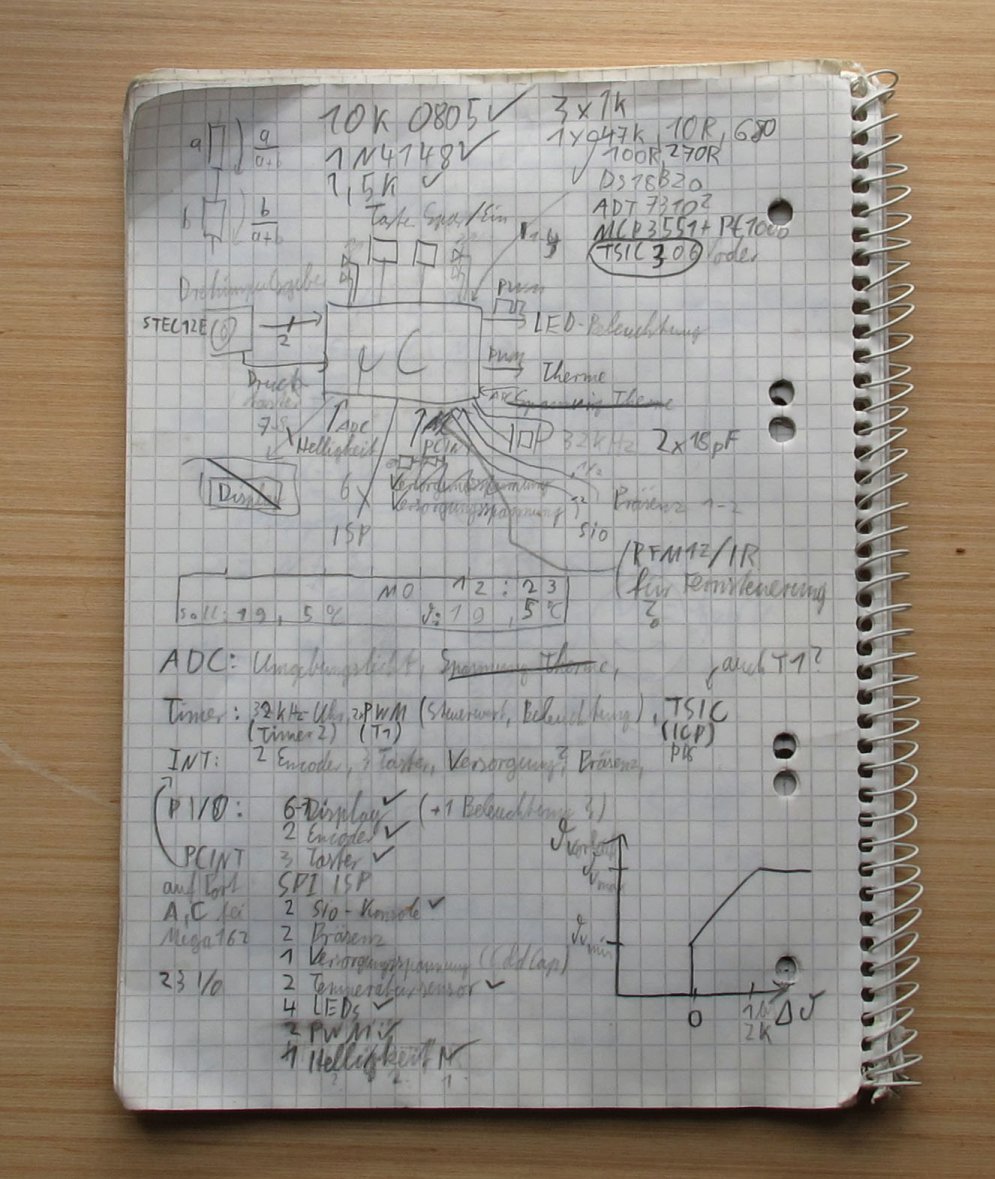 10K 0805 ✓
1N4148 ✓
1,5K ✓
3x1k
47K, 10R, 680
100R, 270R
DS18B20
ADT 7310?
MCP3551 + Pt1000
TSIC 306 oder
a
a
a+b
b
b
a+b
Taste Spar/Ein
Drehimpulsgeber
STEC12E
2
µC
PWM
LED-Beleuchtung
PWM
Therme
ADC
Spannung Therme
Druck-
taster
ADC
Helligkeit
PCINT
32kHz 2x18pF
Display
6x
Versorgungsspannung
Versorgungsspannung
ISP
Präsenz 1-2
SIO
RFM12/IR
für Fernsteuerung
?
MO 12:23
Soll: 19,5°C ϑ: 19,5°C
ADC: Umgebungslicht, Spannung Therme, auch T1?
Timer: 32kHz-Uhr, 2xPWM (Steuerwert, Beleuchtung), TSIC
(Timer2) (T1) (ICP)
INT: 2 Encoder, 3 Taster, Versorgung? Präsenz,
PI/O: 6-7 Display ✓ (+1 Beleuchtung)
2 Encoder ✓
PCINT 3 Taster ✓
auf Port SPI ISP
A,C bei 2 SIO-Konsole ✓
Mega162 2 Präsenz
1 Versorgungsspannung (GoldCap)
23 I/O 2 Temperatursensor ✓
4 LEDs ✓
2 PWM ✓
1 Helligkeit
ϑvorlauf
ϑvmax
ϑvmin
0
Δϑ
2K